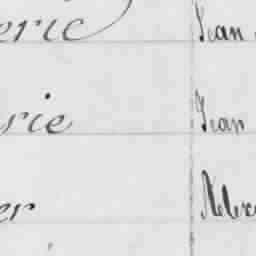 eric Jean
rie Jean
er Alex